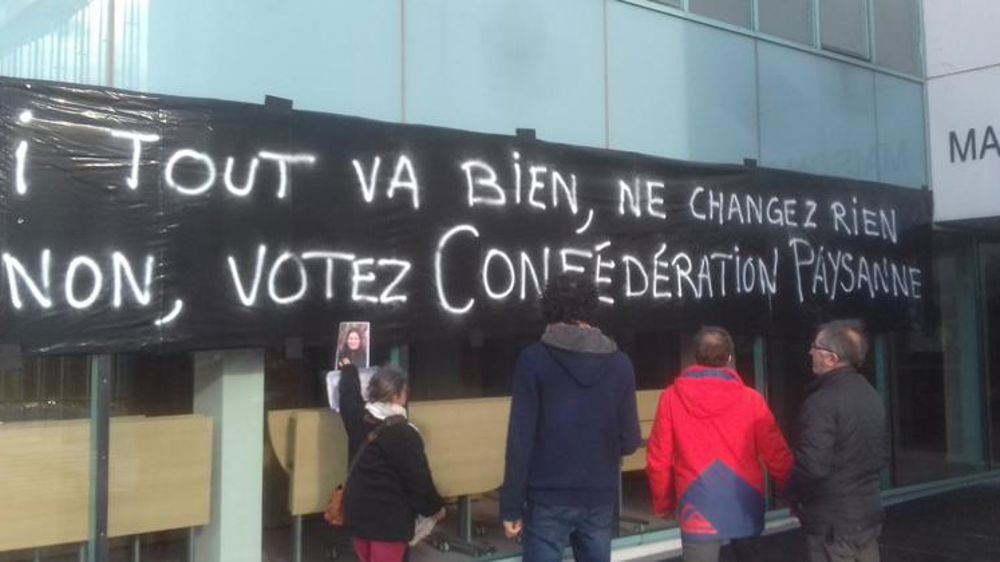 i TOUT VA BIEN, NE CHANGEZ RIEN
NON, VOTEZ CONFÉDÉRATION PAYSANNE
MA
MAISON